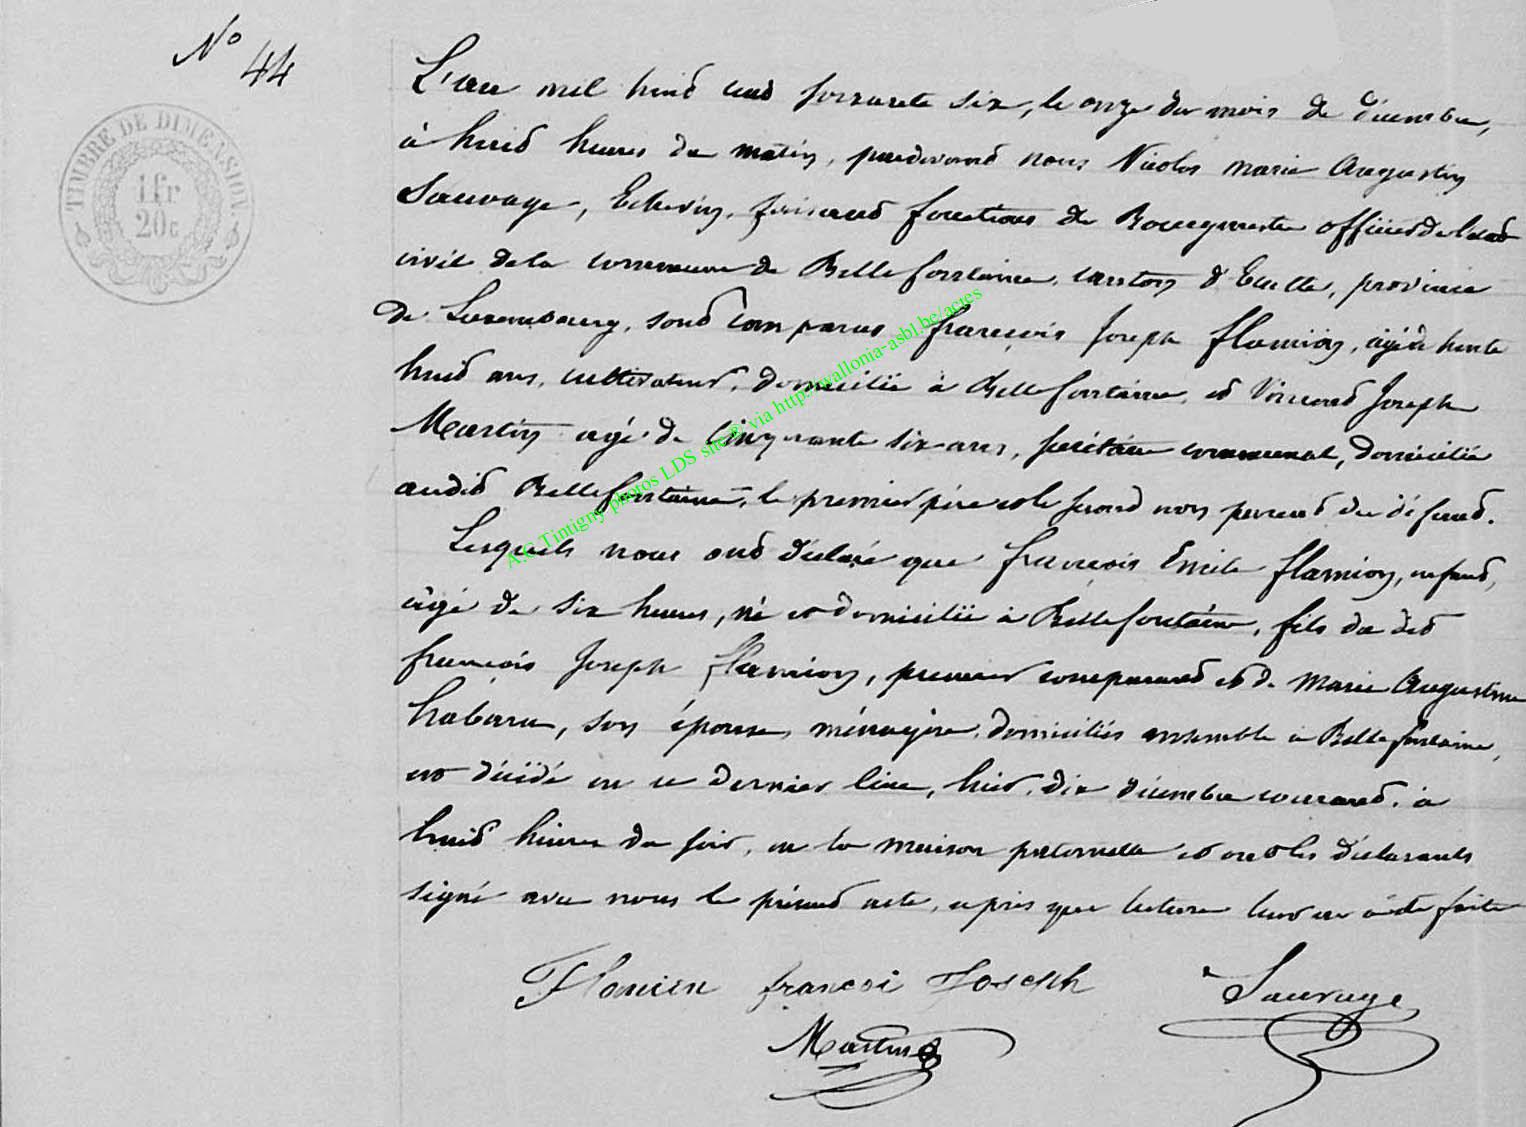 N° 44
TIMBRE DE DIMENSION.
1 fr
20 c
L'an mil huit cent soixante six, le onze du mois de décembre,
à huit heures du matin, pardevant nous Nicolas Marie Augustin
Sauvage, Echevin, faisant fonctions de Bourgmestre officier de l'état
civil de la commune de Bellefontaine, canton d'Etalle, province
de Luxembourg, sont comparus françois Joseph flamion, agé de trente
huit ans, cultivateur, domicilié à Bellefontaine, et Vincent Joseph
Martin agé de cinquante six ans, secrétaire communal, domicilié
audit Bellefontaine, le premier père et le second non parent du défunt.
Lesquels nous ont déclaré que françois Emile flamion, enfant,
âgé de six heures, né et domicilié à Bellefontaine, fils du dit
françois Joseph flamion, premier comparant et de Marie Augustine
habaru, son épouse, ménagère, domiciliés ensemble à Bellefontaine,
est décédé en ce dernier lieu, hier, dix décembre courant, à
huit heures du soir, en la maison paternelle et ont les déclarants
signé avec nous le présent acte, après que lecture leur en a été faite
Flamion françoi Joseph Sauvage
Martin
A.C Tintigny photos LDS site & via http://wallonia-asbl.be/actes